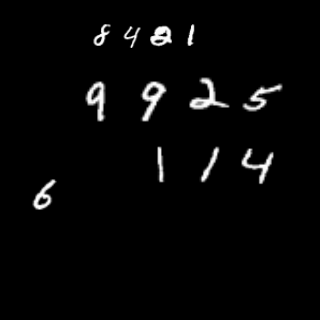 8 4 2 1
9 9 2 5
1 1 4
6